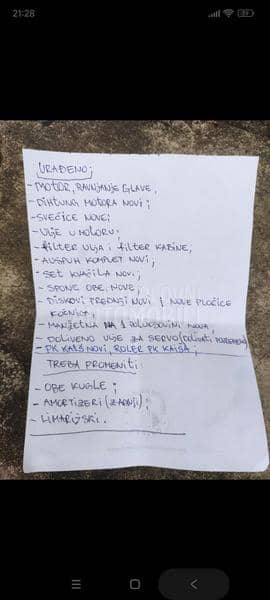 21:28
URAĐENO:
- MOTOR, RAVNJANJE GLAVE,
- DIHTUNG MOTORA NOVI;
- SVEĆICE NOVE;
- ULJE U MOTORU;
- FILTER ULJA I FILTER KABINE,
- AUSPUH KOMPLET NOVI;
- SET KVAČILA NOVI;
- SPONE OBE, NOVE,
- DISKOVI PREDNJI NOVI I NOVE PLOČICE
KOČNICA;
- MANŽETNA NA 1 POLUOSOVINI NOVA,
- DOLIVENO ULJE ZA SERVO
- PK KAIŠ NOVI, ROLER PK KAIŠA,
TREBA PROMENITI:
- OBE KUGLE;
- AMORTIZERI (ZADNJI);
- LIMARIJSKI.